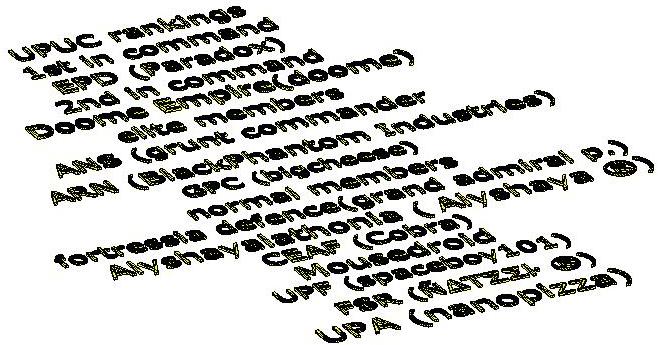 UPUC rankings
1st in command
EPD (Paradox)
2nd in command
Doome Empire(doome)
elite members
ANS (grunt commander
ARN (BlackPhantom Industries)
GPC (bigcheese)
normal members
fortressia defence(grand admiral p.)
Alyshayalathonia (Alyshaya ®)
CEAF (Cobra)
Mousedroid
UPF (spaceboy101)
FSR
UPA (nanopizza)